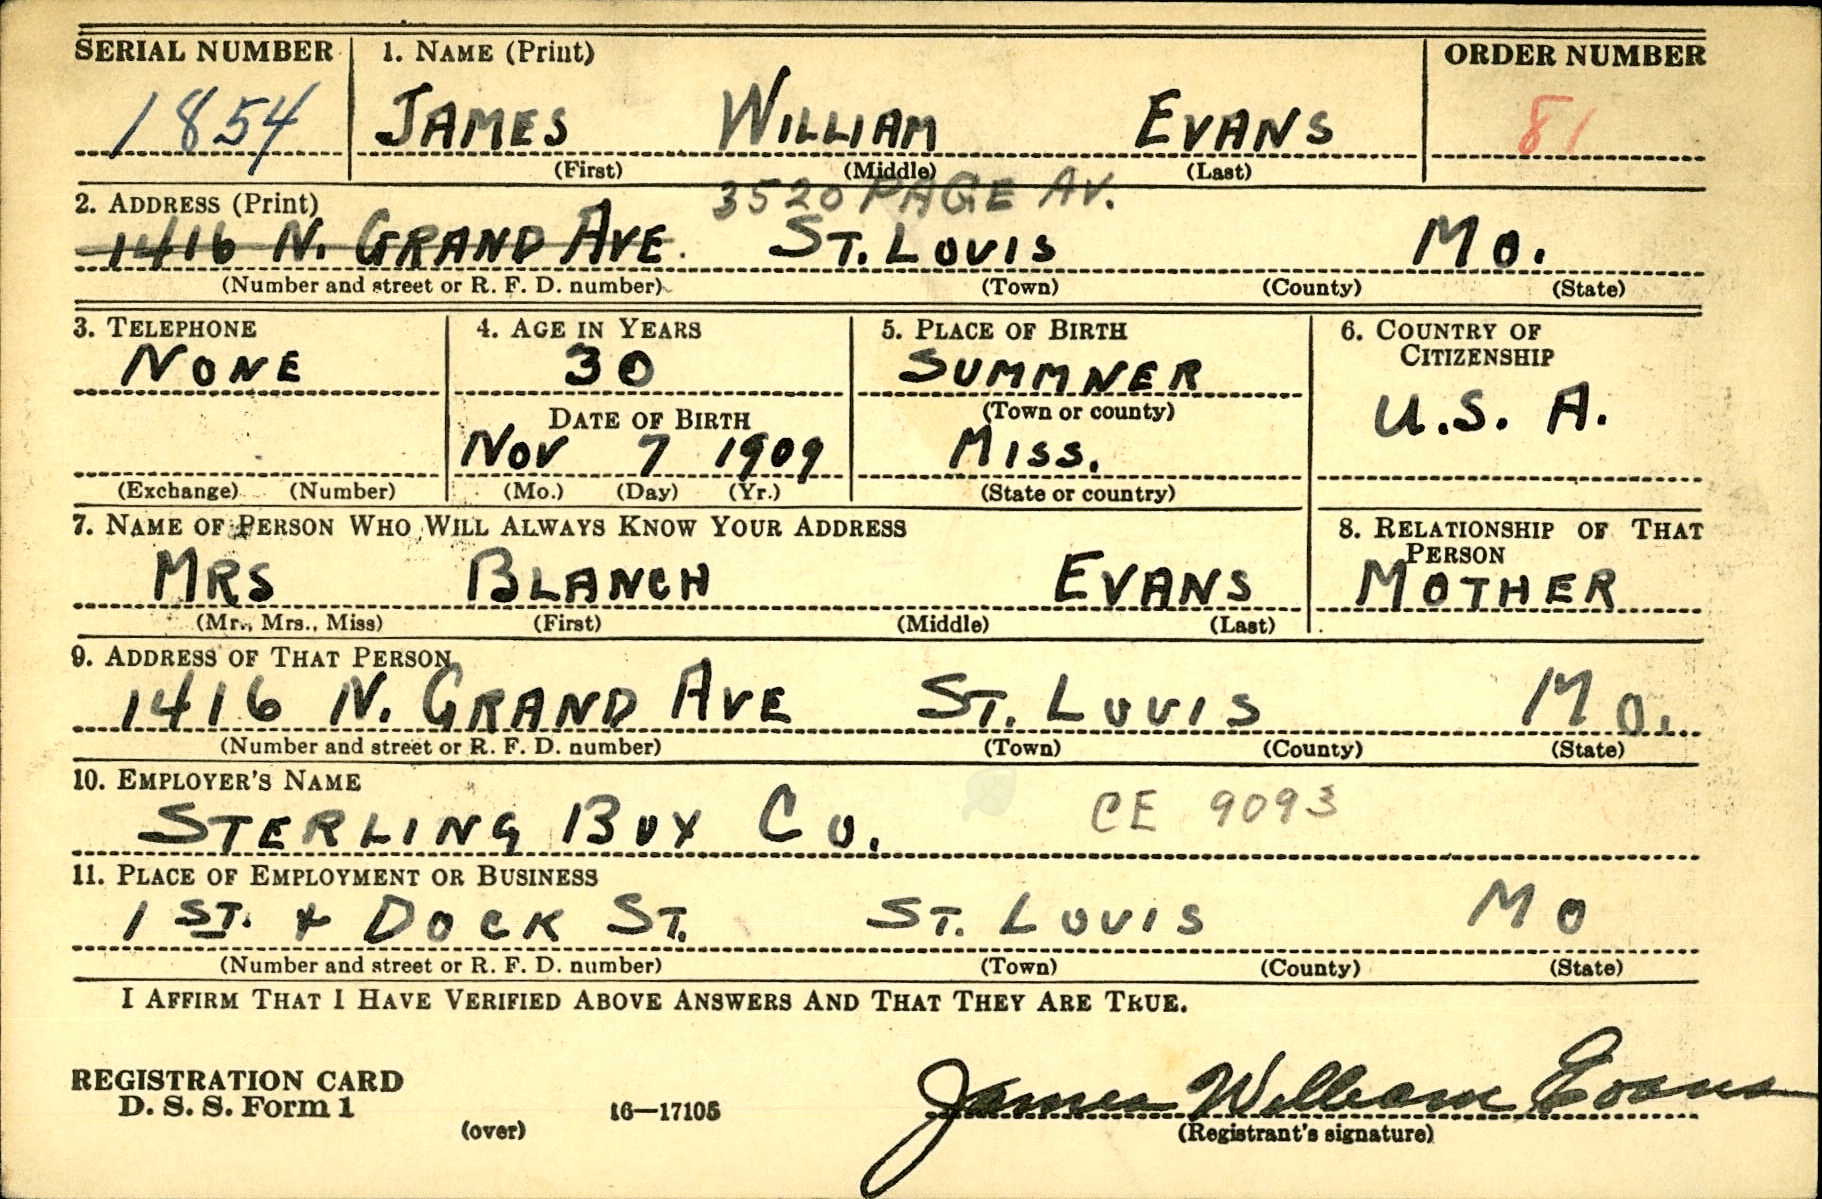 SERIAL NUMBER 1. NAME (Print) ORDER NUMBER
1854 JAMES WILLIAM EVANS 81
(First) (Middle) (Last)
3520 PAGE AV.
2. ADDRESS (Print)
1416 N. GRAND AVE. ST. LOUIS MO.
(Number and street or R. F. D. number) (Town) (County) (State)
3. TELEPHONE 4. AGE IN YEARS 5. PLACE OF BIRTH 6. COUNTRY OF CITIZENSHIP
NONE 30 SUMMNER U.S. A.
DATE OF BIRTH (Town or county)
NOV 7 1909 MISS.
(Exchange) (Number) (Mo.) (Day) (Yr.) (State or country)
7. NAME OF PERSON WHO WILL ALWAYS KNOW YOUR ADDRESS 8. RELATIONSHIP OF THAT PERSON
MRS BLANCH EVANS MOTHER
(Mr., Mrs., Miss) (First) (Middle) (Last)
9. ADDRESS OF THAT PERSON
1416 N. GRAND AVE ST. LOUIS MO.
(Number and street or R. F. D. number) (Town) (County) (State)
10. EMPLOYER'S NAME
STERLING BOX CO. CE 9093
11. PLACE OF EMPLOYMENT OR BUSINESS
1 ST. + DOCK ST. ST. LOUIS MO
(Number and street or R. F. D. number) (Town) (County) (State)
I AFFIRM THAT I HAVE VERIFIED ABOVE ANSWERS AND THAT THEY ARE TRUE.
REGISTRATION CARD
D. S. S. Form 1 16—17105 James William Evans
(over) (Registrant's signature)